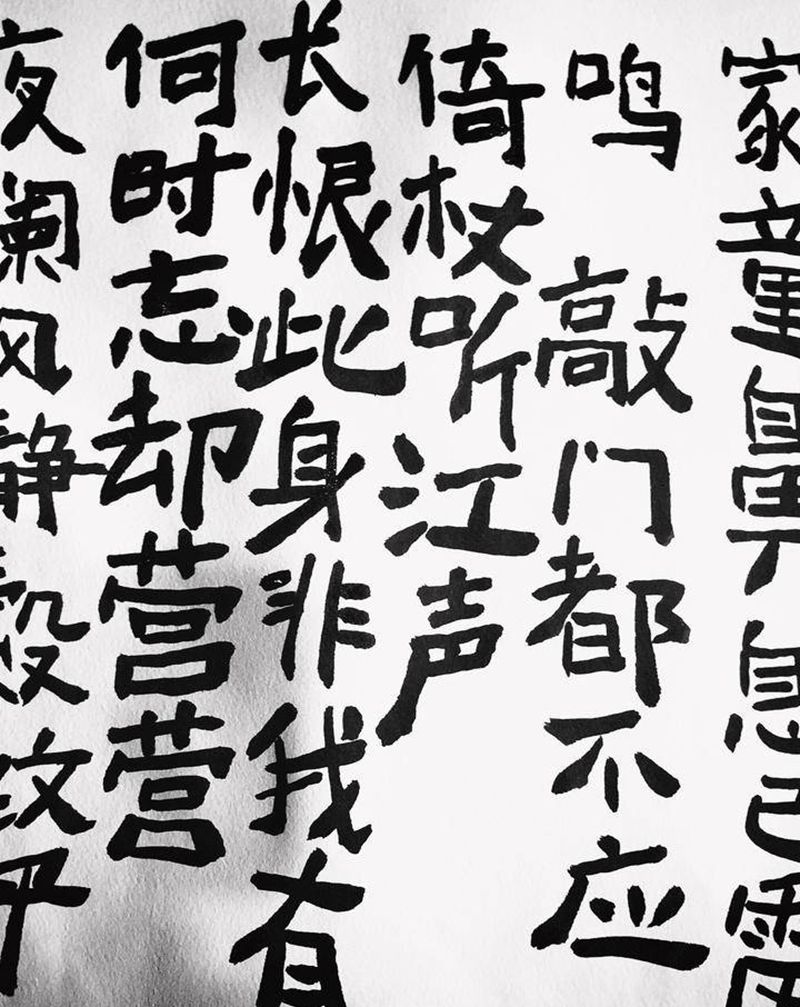 家童鼻息已雷
鸣 敲门都不应
倚杖听江声
长恨此身非我有
何时忘却营营
夜阑风静縠纹平